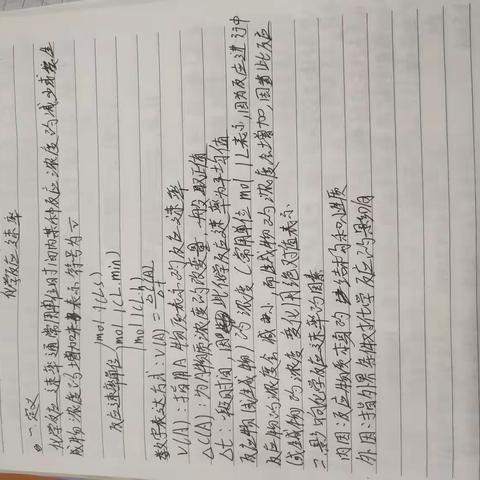 化学反应速率
一.定义
化学反应速率通常用单位时间内某种反应浓度的减少或某生
成物浓度的增加来表示 符号为 v
反应速率单位 mol/(L·s)
mol/(L·min)
mol/(L·h)
数学表达方式:V(A) = Δc(A)/Δt
V(A):指用A物质表示的反应速率
ΔC(A):为A物质浓度的改变量,一般取正值
Δt:一段时间,因此化学反应速率为平均值
反应物(或生成物)的浓度(常用单位 mol/L表示,因为反应进行中
反应物的浓度会减小,而生成物的浓度会增加,因此反应
(或生成物)的浓度变化用绝对值表示
二.影响化学反应速率的因素
内因:反应物质本身的结构和性质
外因:指外界条件对化学反应的影响